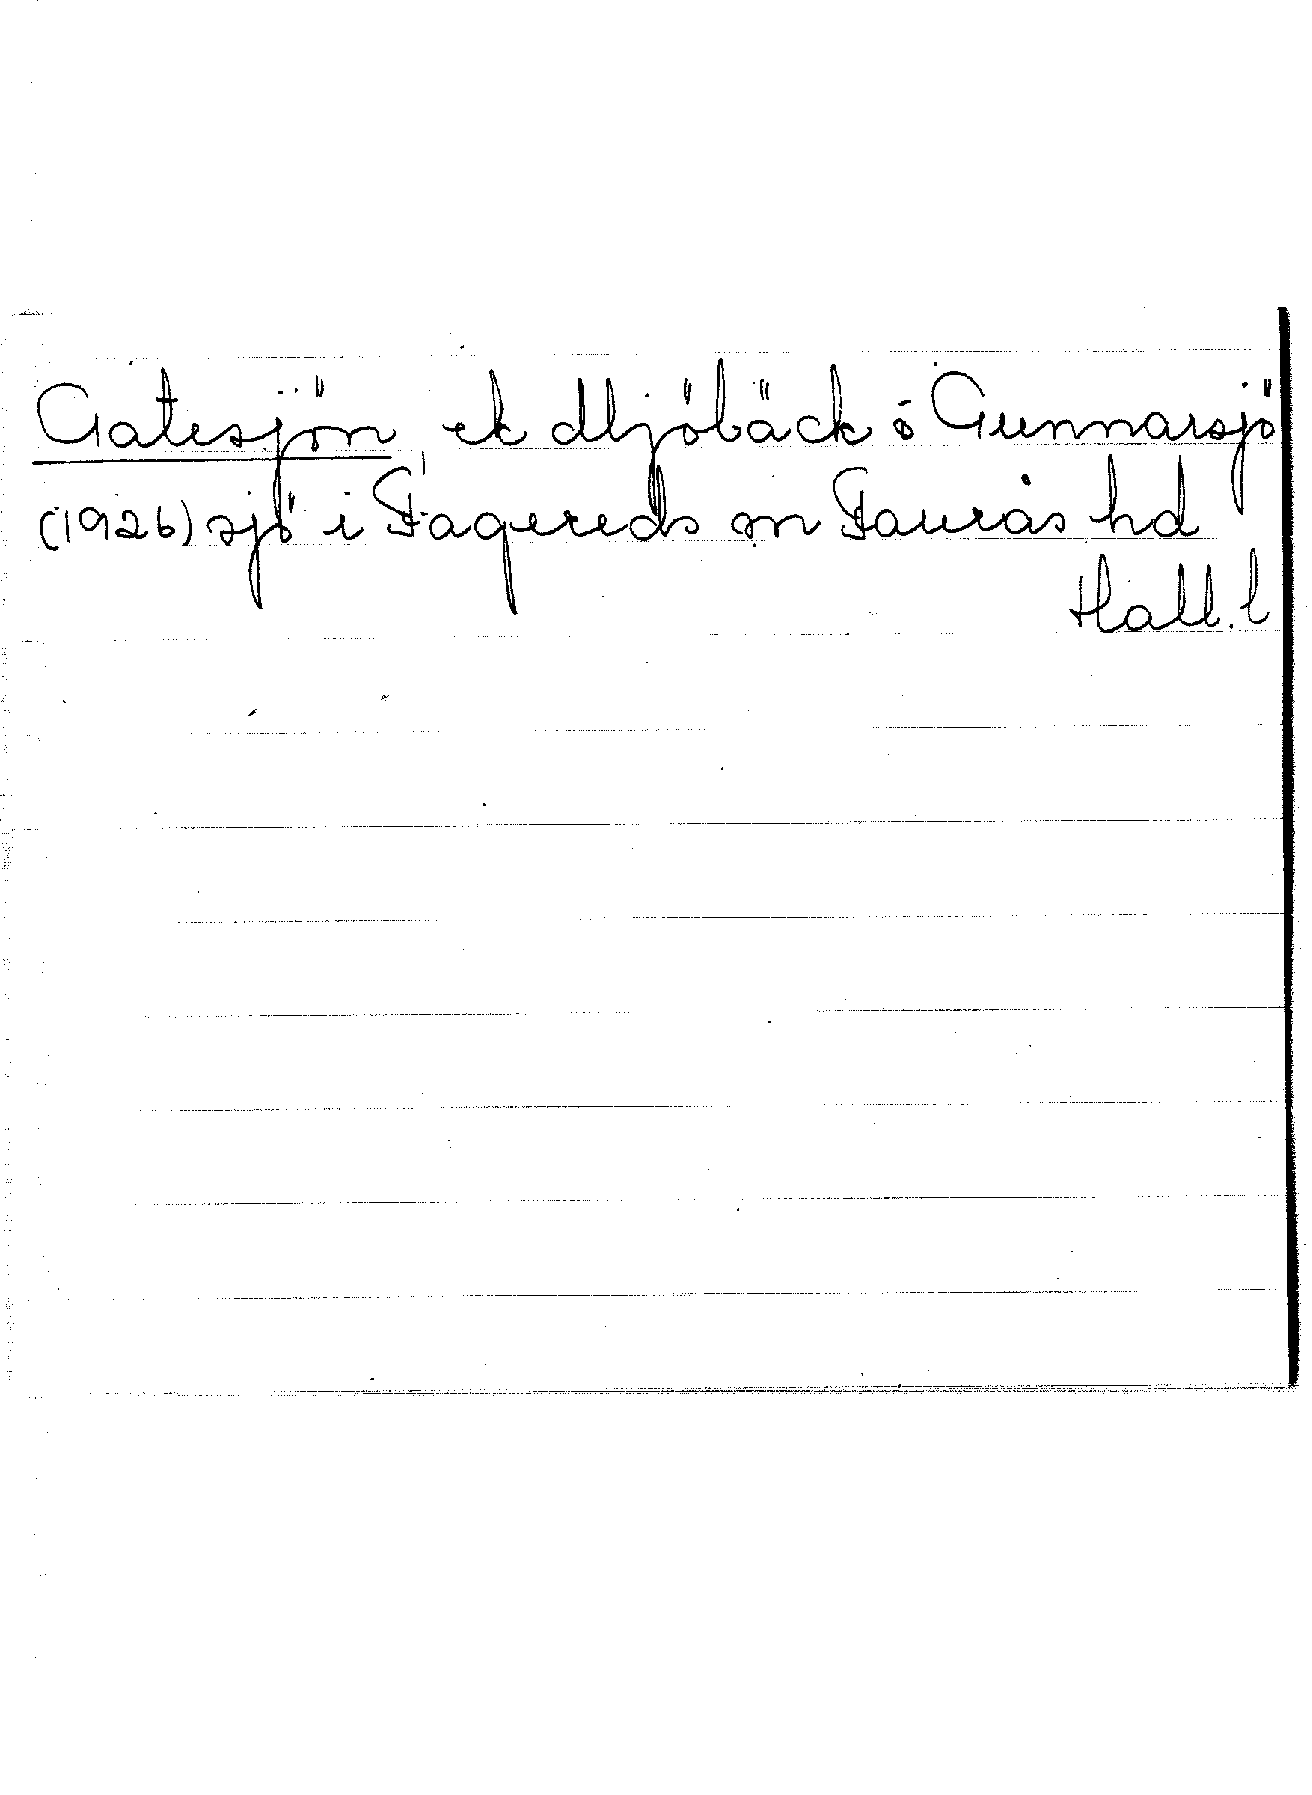 Gatesjön, ek Mjöbäck ö Gunnarsjö
(1926) sjö i Fagereds sn Faurås hd
Hall. l